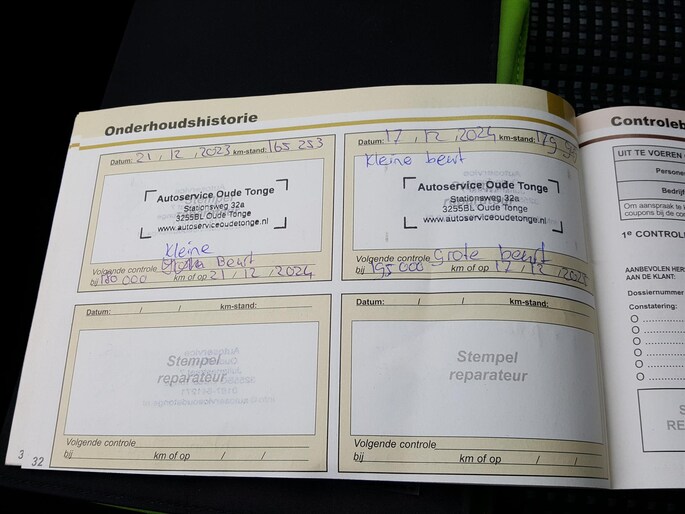 Onderhoudshistorie
Datum: 21 / 12 / 2023 km-stand: 165 253
Autoservice Oude Tonge
Stationsweg 32a
3255BL Oude Tonge
www.autoserviceoudetonge.nl
Kleine
Volgende controle Beurt
bij 180 000 km of op 21 / 12 / 2024
Datum: 17 / 12 / 2024 km-stand:
Kleine beurt
Autoservice Oude Tonge
Stationsweg 32a
3255BL Oude Tonge
www.autoserviceoudetonge.nl
Volgende controle Grote beurt
bij 195 000 km of op 17 / 12 / 2025
Datum: / / km-stand:
Stempel
reparateur
Volgende controle
bij km of op / /
Datum: / / km-stand:
Stempel
reparateur
Volgende controle
bij km of op / /
3 32
Controleb
UIT TE VOEREN
Persone
Bedrijf
Om aanspraak te
coupons bij de con
1º CONTROL
AANBEVOLEN HERS
AAN DE KLANT:
Dossiernummer
Constatering:
O
O
O
O
O
O
S
RE